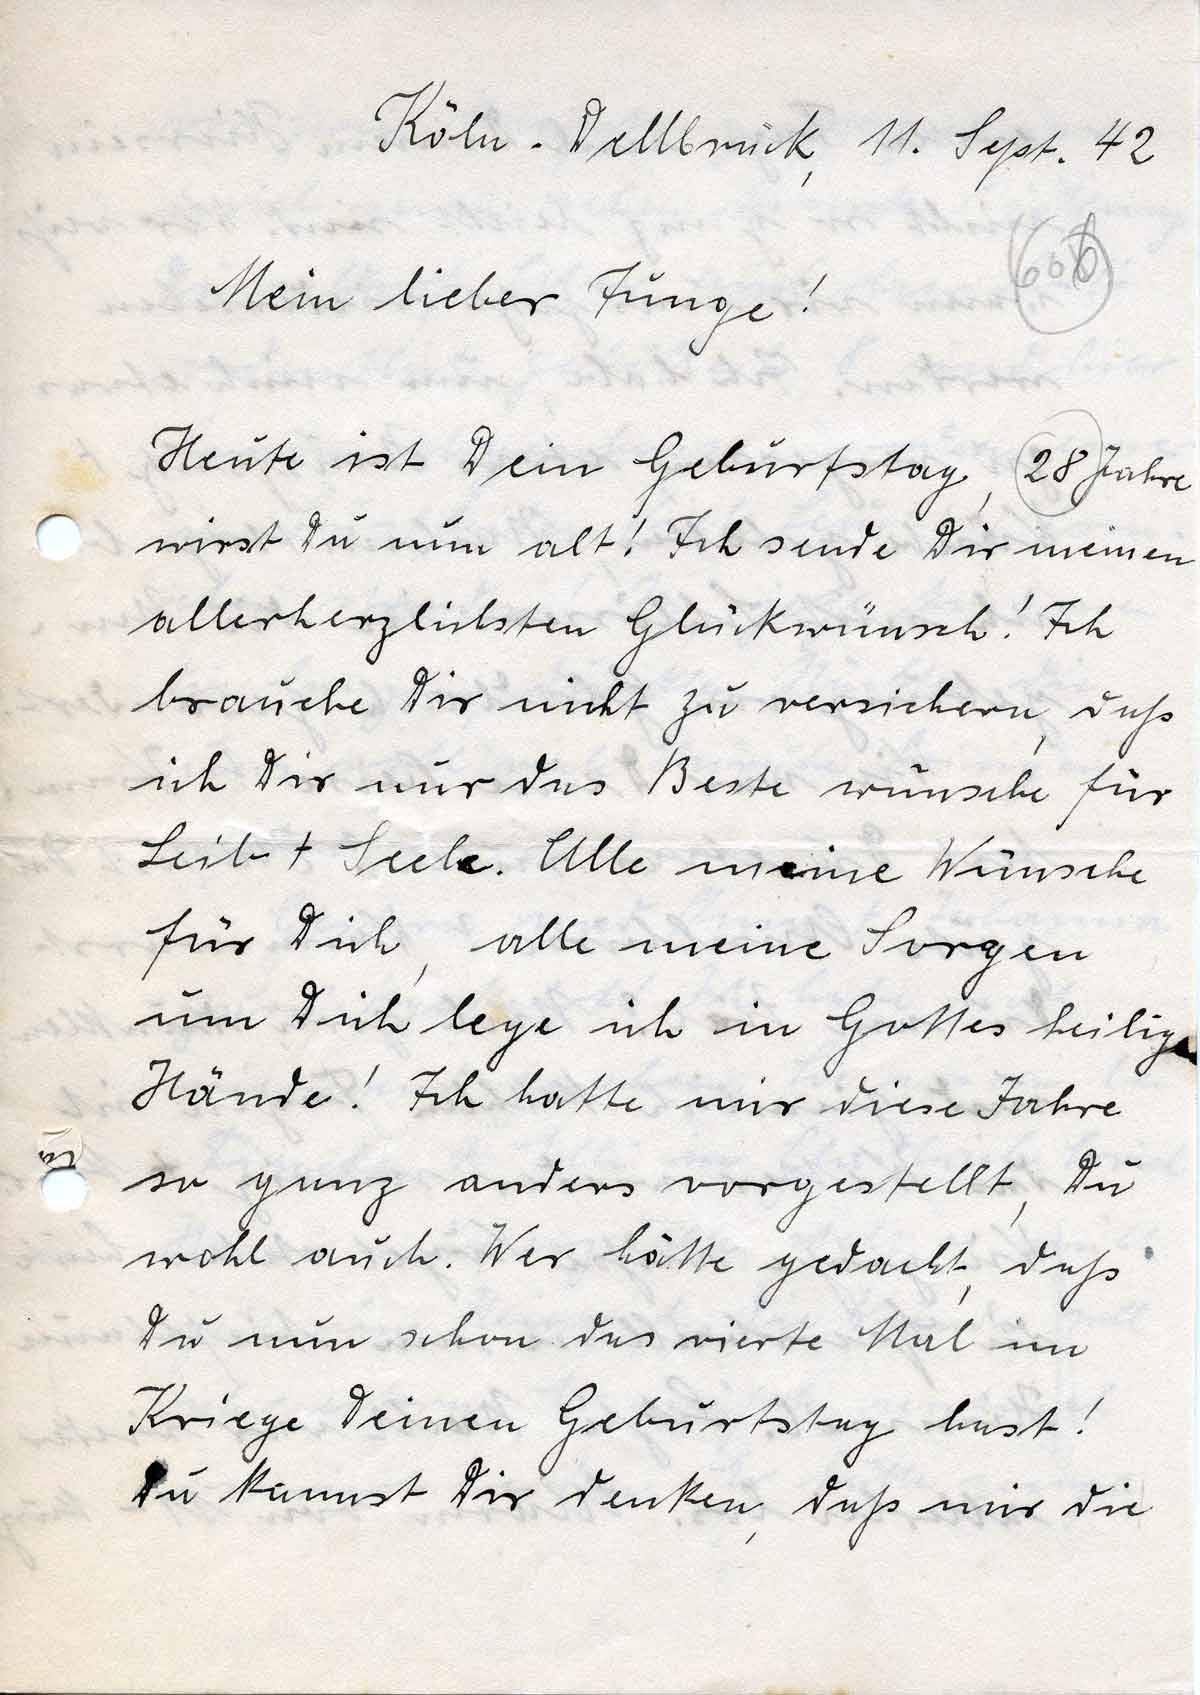 Köln - Dellbrück, 11. Sept. 42
606
Mein lieber Junge!
Heute ist Dein Geburtstag, 28 Jahre
wirst Du nun alt! Ich sende Dir meinen
allerherzlichsten Glückwunsch! Ich
brauche Dir nicht zu versichern, daß
ich Dir nur das Beste wünsche für
Leib + Seele. Alle meine Wünsche
für Dich, alle meine Sorgen
um Dich lege ich in Gottes heilige
Hände! Ich hatte mir diese Jahre
so ganz anders vorgestellt, Du
wohl auch. Wer hätte gedacht, daß
Du nun schon das vierte Mal im
Kriege Deinen Geburtstag hast!
Du kannst Dir denken, daß mir die